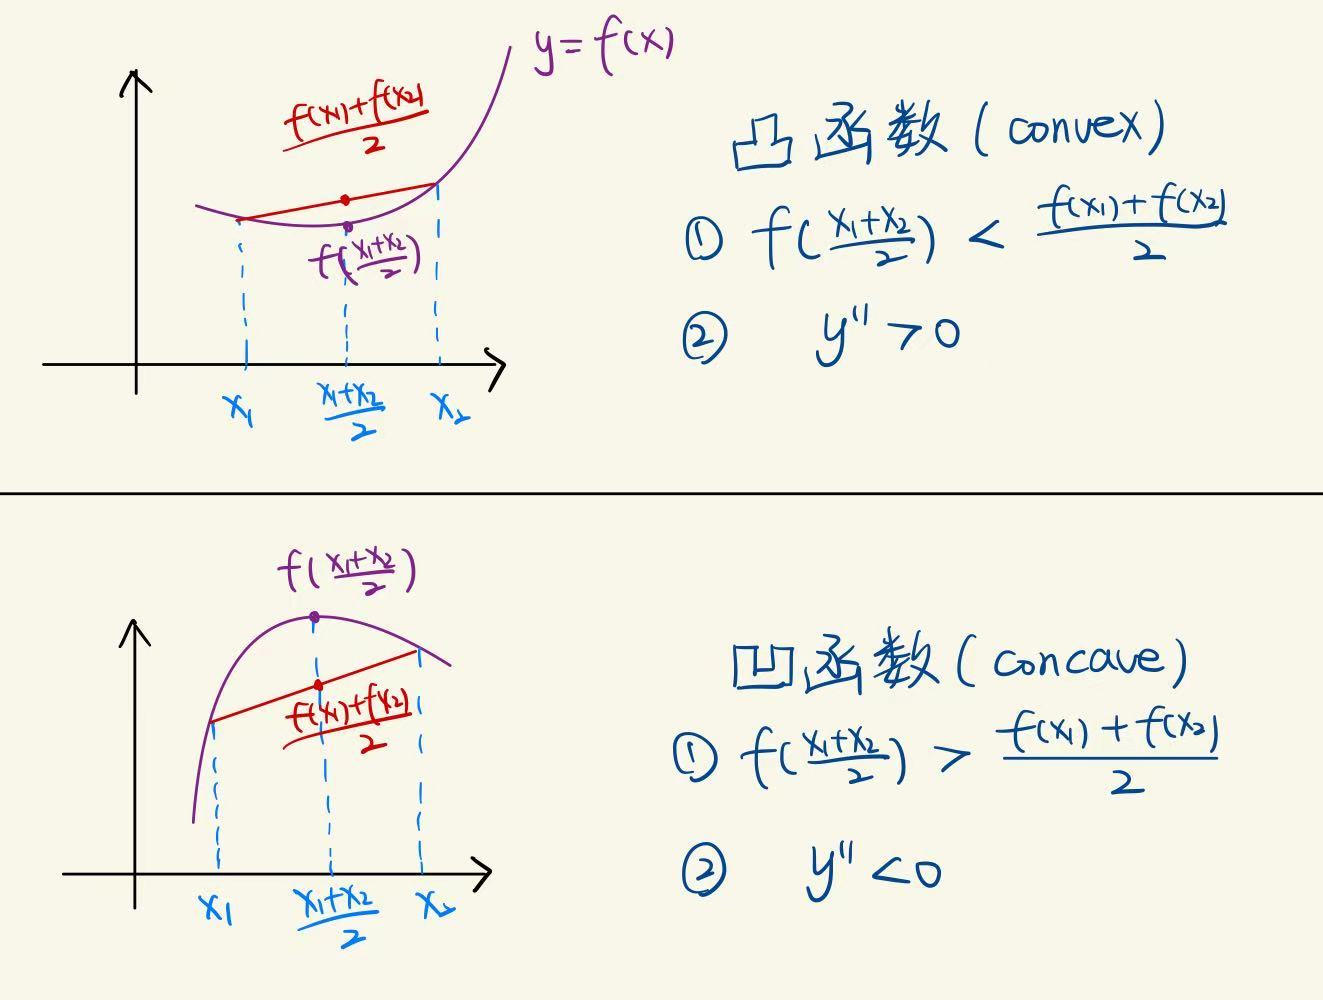 y=f(x)
f(x₁)+f(x₂)/2
f(x₁+x₂/2)
x₁
x₁+x₂/2
x₂
凸函数(convex)
① f(x₁+x₂/2) < f(x₁)+f(x₂)/2
② y″>0
f(x₁+x₂/2)
f(x₁)+f(x₂)/2
x₁
x₁+x₂/2
x₂
凹函数(concave)
① f(x₁+x₂/2) > f(x₁)+f(x₂)/2
② y″<0